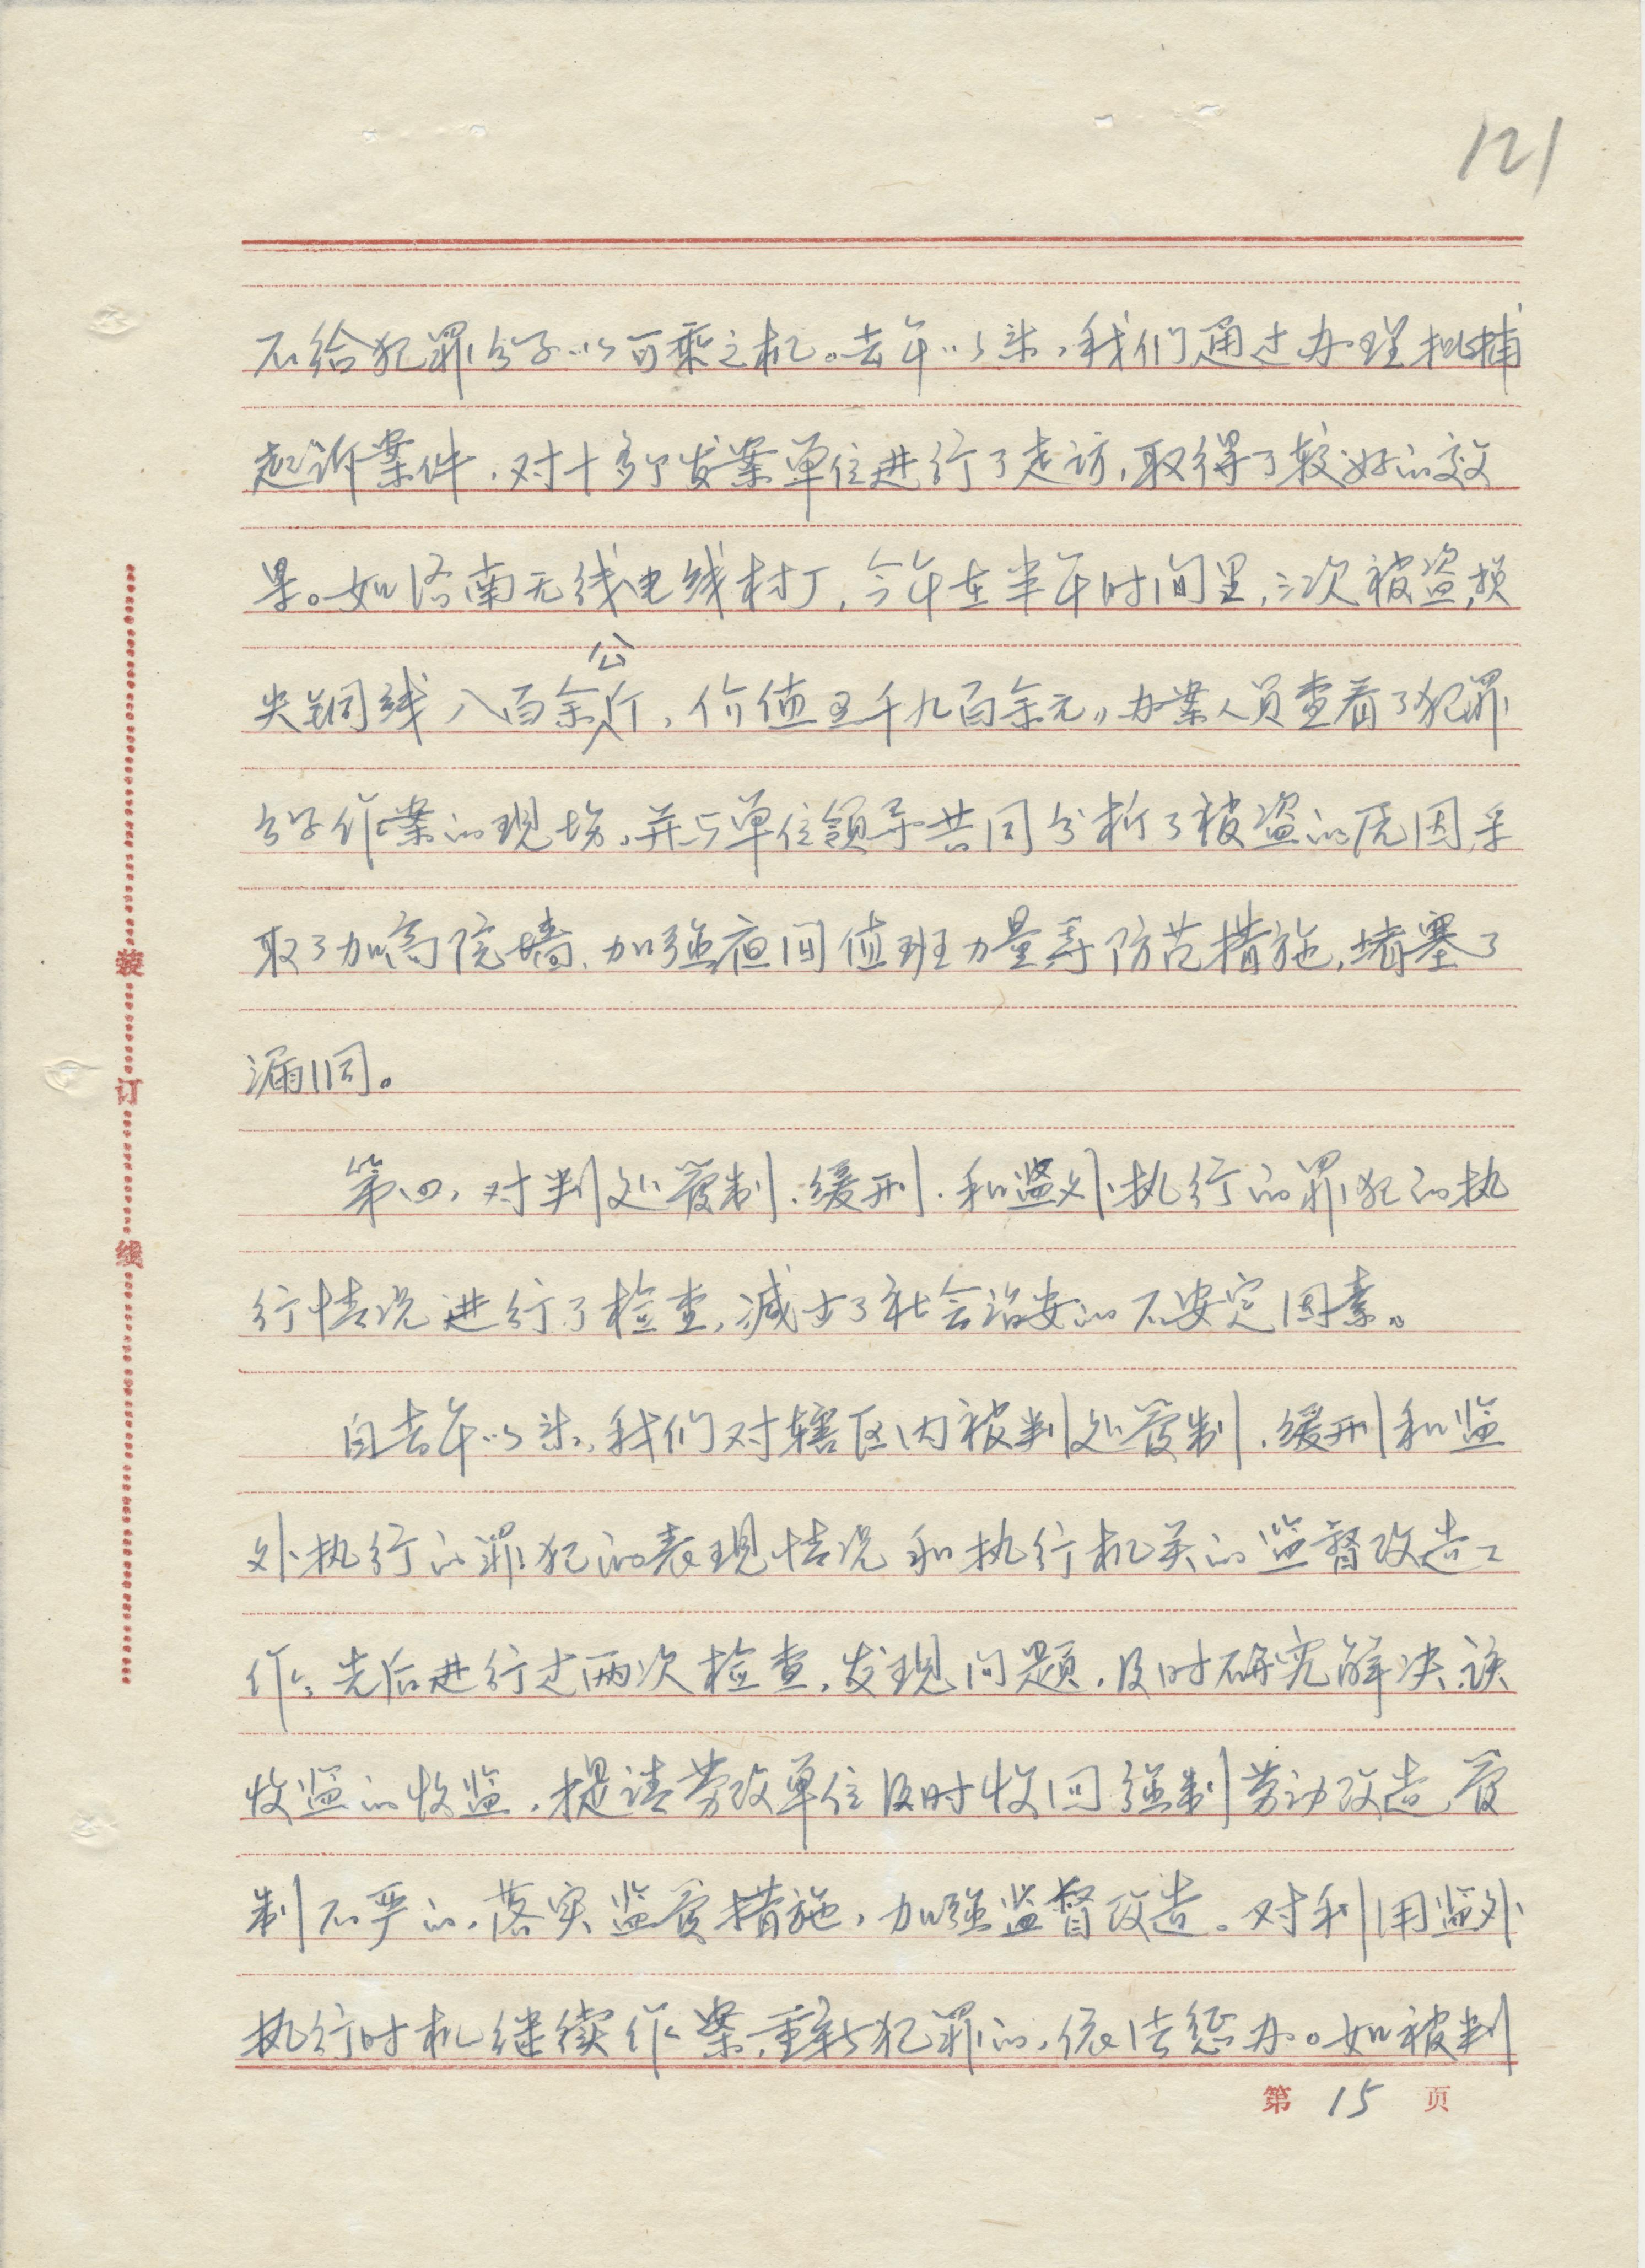 121
不给犯罪分子以可乘之机。去年以来，我们通过办理批捕
起诉案件，对十多个发案单位进行了走访，取得了较好的效
果。如济南无线电线材厂，今年在半年时间里，三次被盗，损
失铜线八百余公斤，价值五千九百余元。办案人员查看了犯罪
分子作案的现场，并与单位领导共同分析了被盗的原因，采
取了加高院墙、加强夜间值班力量等防范措施，堵塞了
漏洞。
第四，对判处管制、缓刑、和监外执行的罪犯的执
行情况进行了检查，减少了社会治安的不安定因素。
自去年以来，我们对辖区内被判处管制、缓刑和监
外执行的罪犯的表现情况和执行机关的监督改造工
作，先后进行过两次检查，发现问题，及时研究解决，该
收监的收监，提请劳改单位及时收回强制劳动改造，管
制不严的，落实监管措施，加强监督改造。对利用监外
执行时机继续作案，重新犯罪的，依法惩办。如被判
第 15 页
装订线